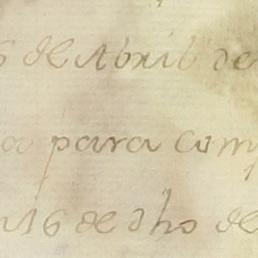 6 de Abril de
a para com
16 de dho de